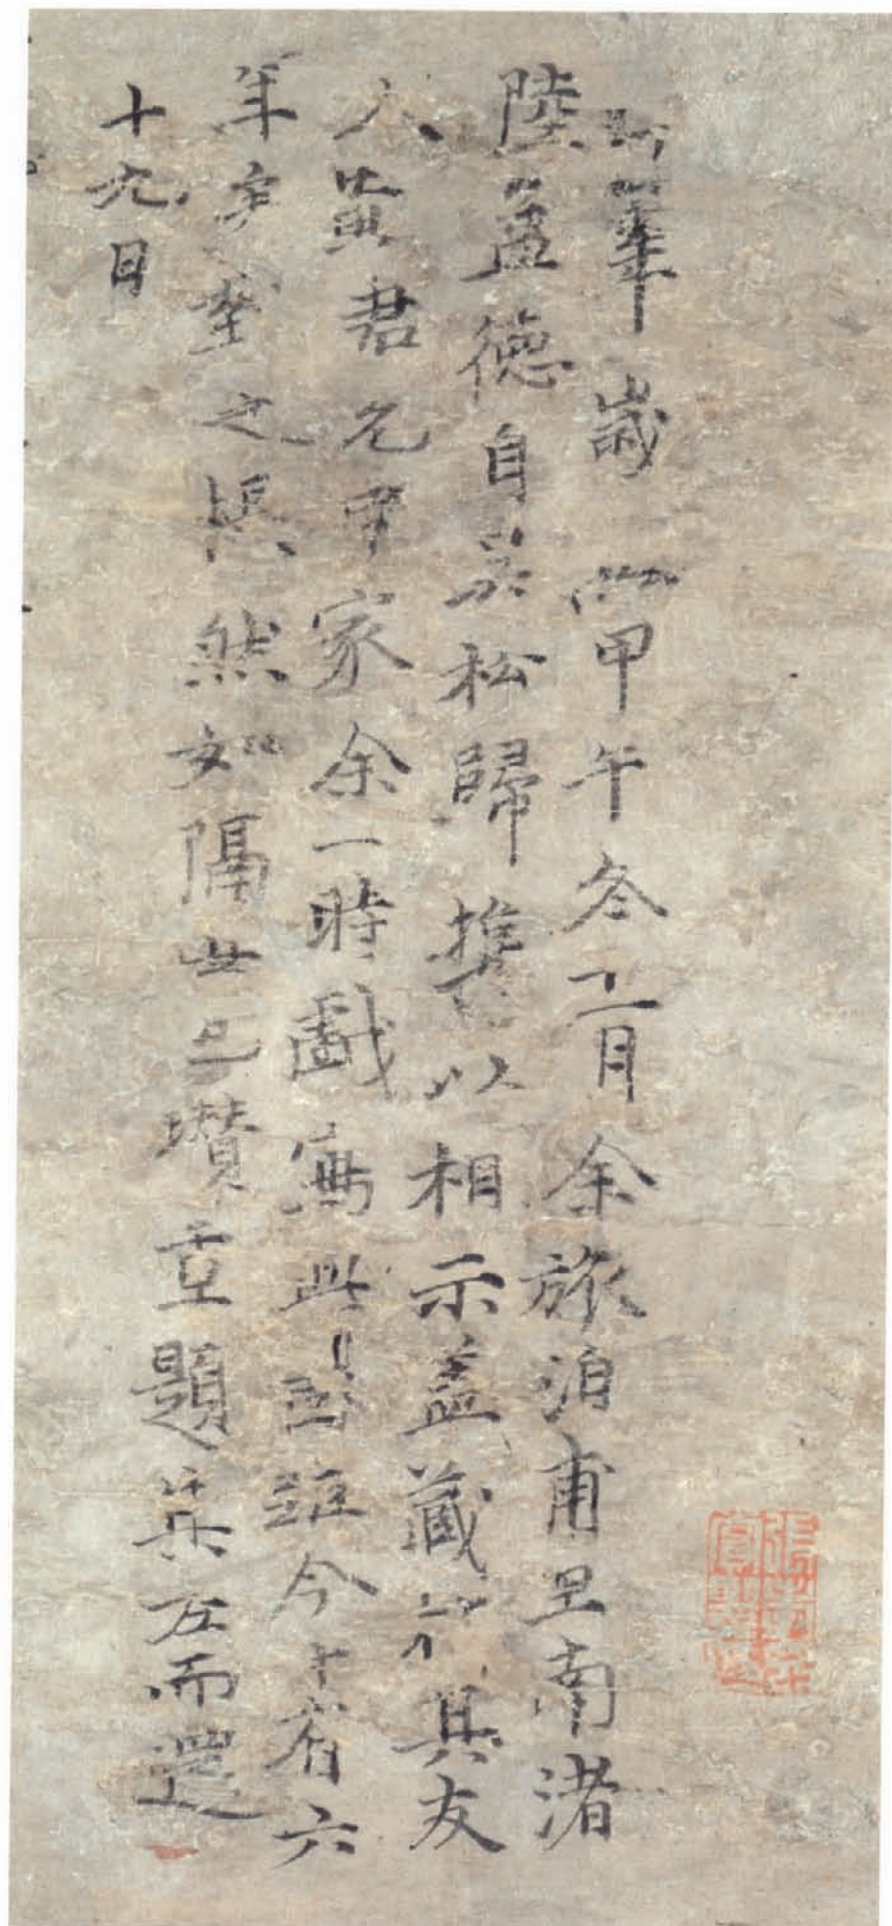 筆歲在甲午冬十一月余旅泊甫里南渚
陸益德自吳松歸攜以相示蓋藏於其友
人黃君允中家余一時戲寫此圖距今十有六
年矣對之悵然如隔世也瓚重題其左而還
十九日